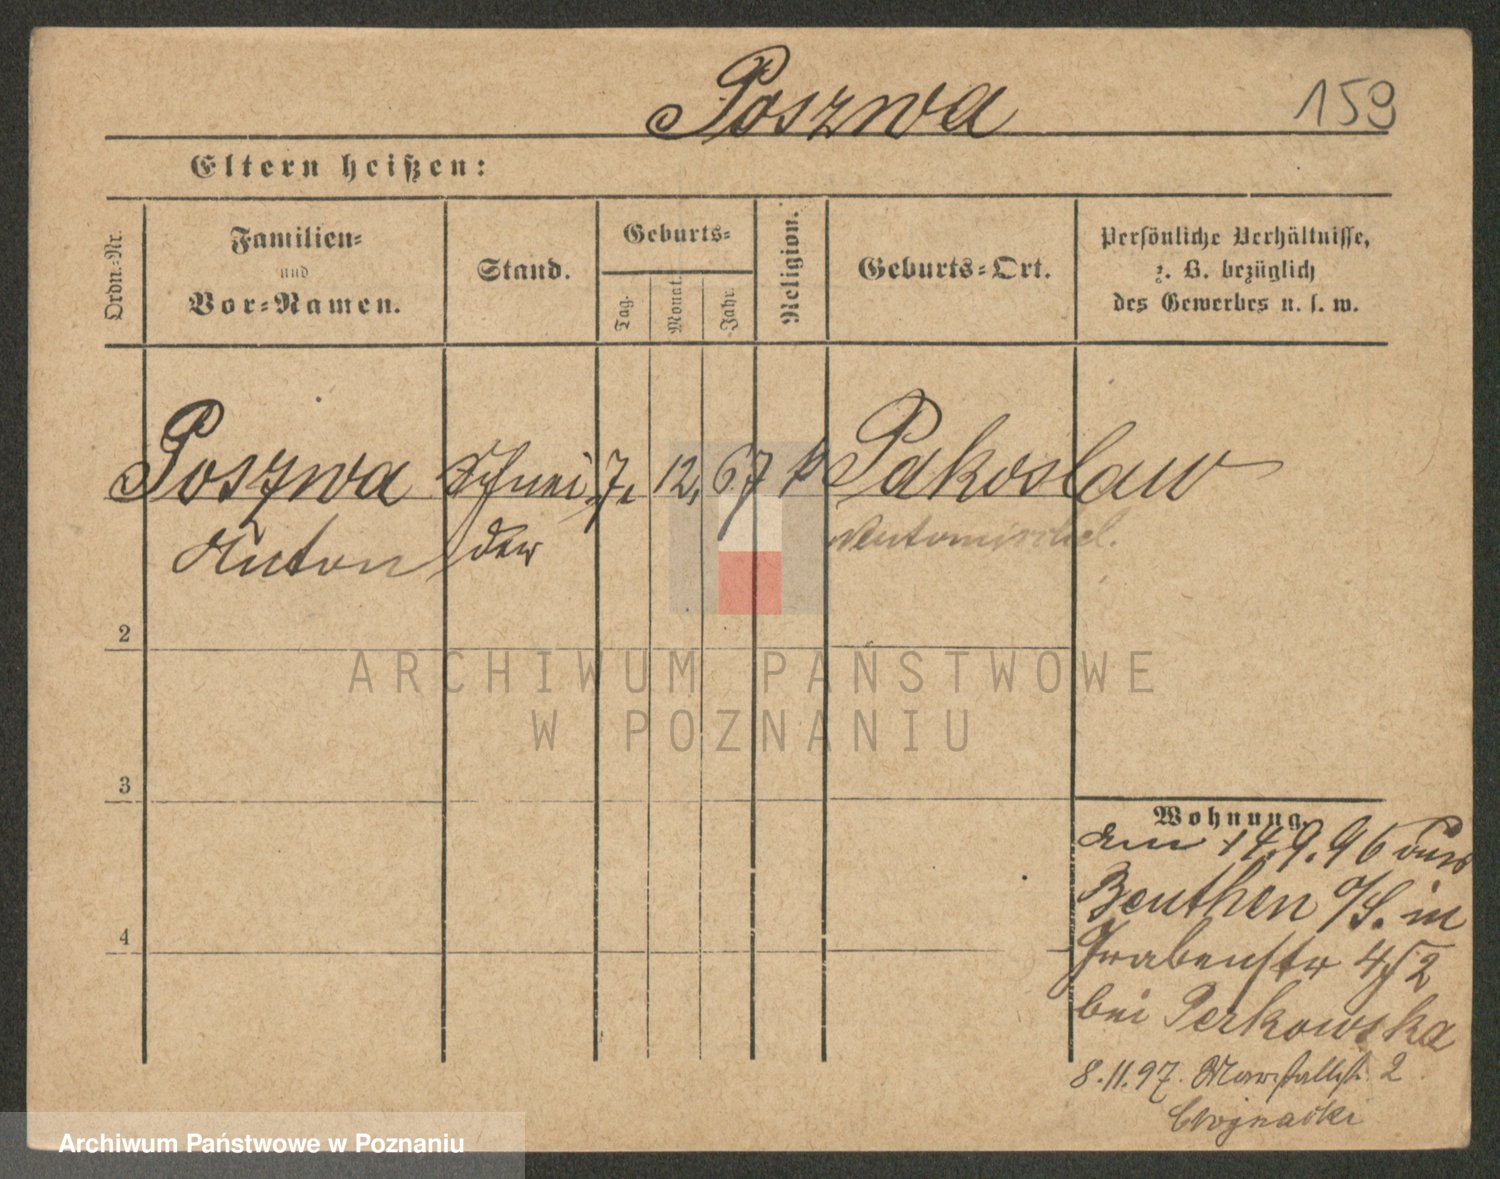 Poszwa 159
Eltern heißen:
Ordn.-Nr.
Familien-
und
Vor-Namen.
Stand.
Geburts-
Tag.
Monat.
Jahr.
Religion.
Geburts-Ort.
Persönliche Verhältnisse,
z. B. bezüglich
des Gewerbes u. s. w.
Poszwa Schnei 7. 12. 67 k Pakoslaw
Anton der Neutomischel.
2
ARCHIWUM PAŃSTWOWE
W POZNANIU
3
Wohnung.
am 14.9.96 aus
Beuthen O/S. in
4
Grabenstr 4/2
bei Perkowska
8.11.97. Marstallstr. 2
Wojnacki
Archiwum Państwowe w Poznaniu